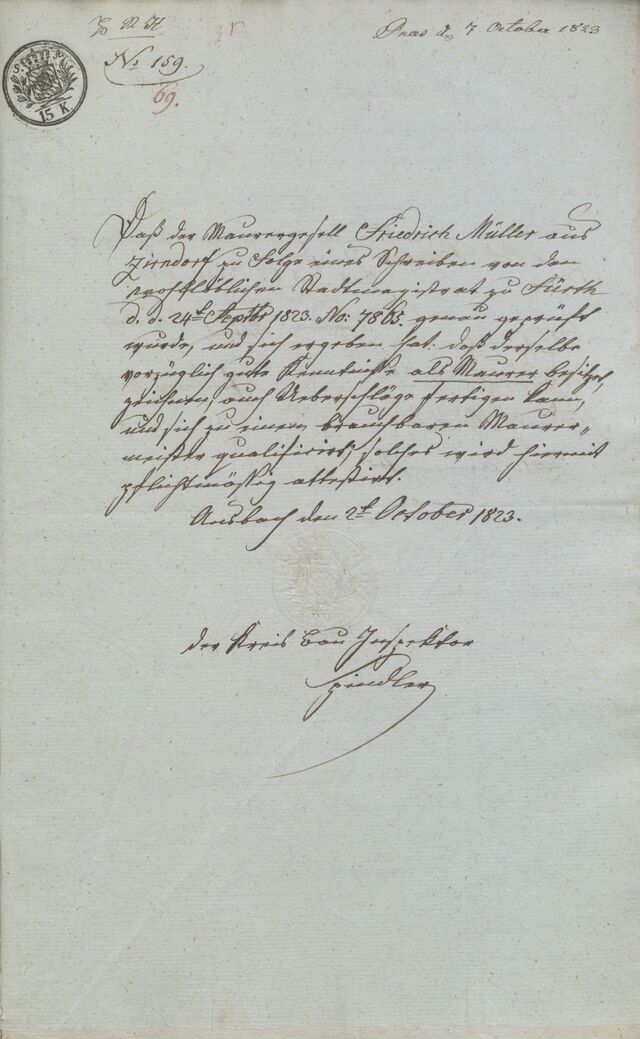 Praes d. 7 October 1823
No 159.
69.
15 K
Daß der Maurergesell Friedrich Müller aus
Zirndorf zu Folge eines Schreiben von dem
wohllöblichen Stadtmagistrat zu Fürth
d. d. 24t Septbr 1823. No: 7865. genau geprüft
wurde, und sich ergeben hat: daß derselbe
vorzüglich gute Kenntniße als Maurer besitzet,
zeichnen, auch Ueberschläge fertigen kann,
und sich zu einem brauchbaren Maurer-
meister qualificirt; solches wird hiermit
pflichtmäßig attestirt.
Ansbach den 2t October 1823.
der Kreis Bau Inspektor
Spindler